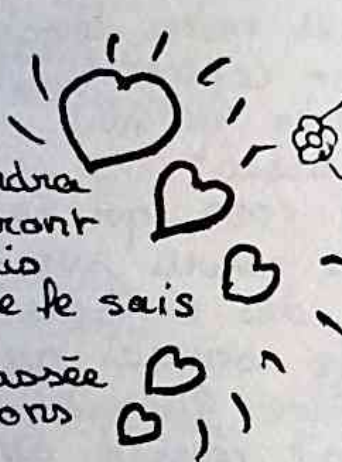 ndra
ront
is
e le sais
assée
ons